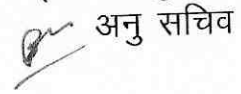 अनु सचिव